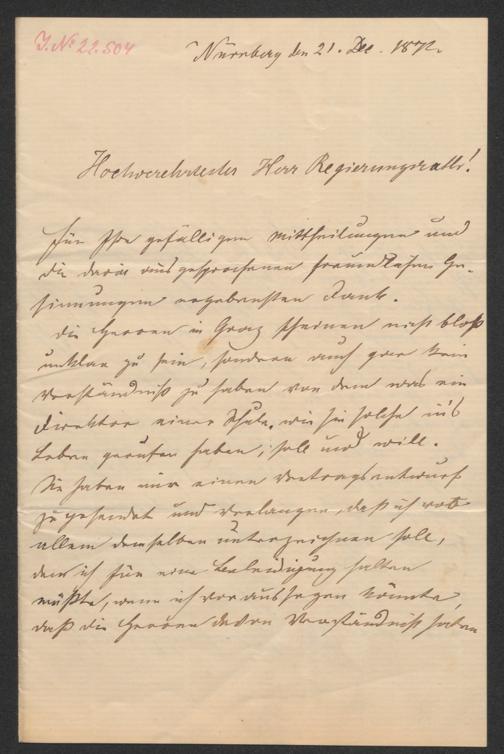 J. No 22.504
Nürnberg den 21. Dec. 1872.
Hochverehrtester Herr Regierungsrath!
Für Ihre gefälligen Mittheilungen und
die darin ausgesprochenen freundlichen Ge-
sinnungen ergebensten Dank.
Die Herren in Graz scheinen nicht bloß
unklar zu sein, sondern auch gar kein
Verständniß zu haben von dem was ein
Direktor einer Schule, wie sie solche in's
Leben gerufen haben, soll und will.
Sie haben mir einen Vertragsentwurf
zugesendet und verlangen, daß ich vor
allem denselben unterzeichnen soll,
den ich für eine Beleidigung halten
müßte, wenn ich voraussetzen könnte,
daß die Herren davon Verständniß hätten